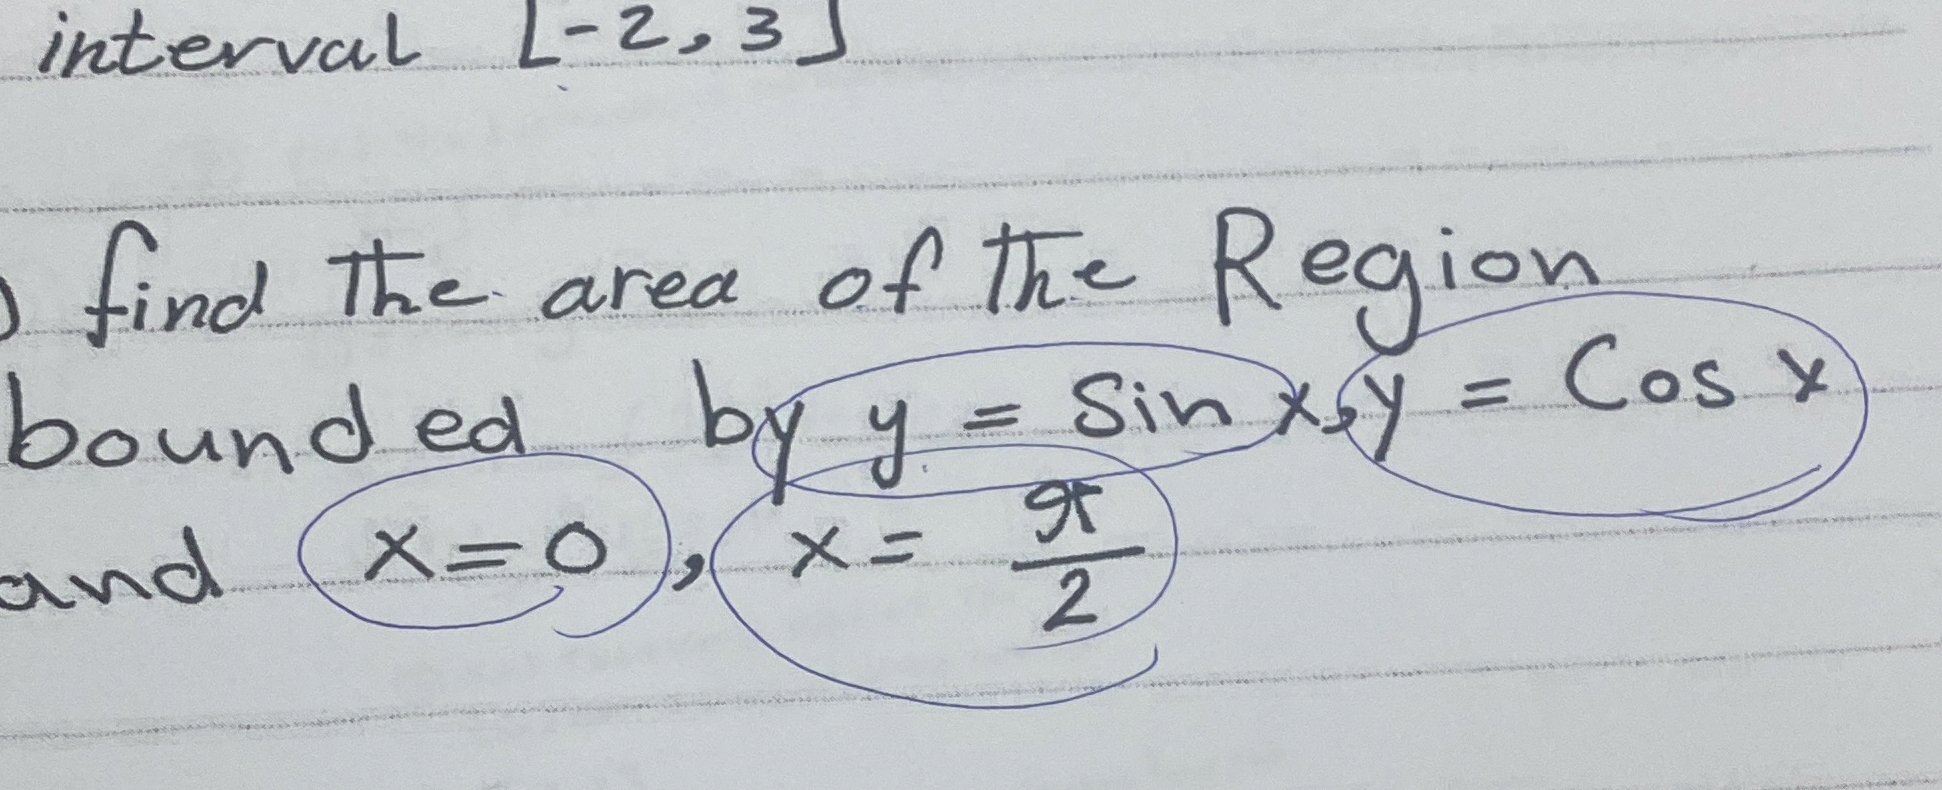 interval [-2, 3]
) find the area of the Region
bounded by y = Sin x, y = Cos x
and x=0, x= π/2